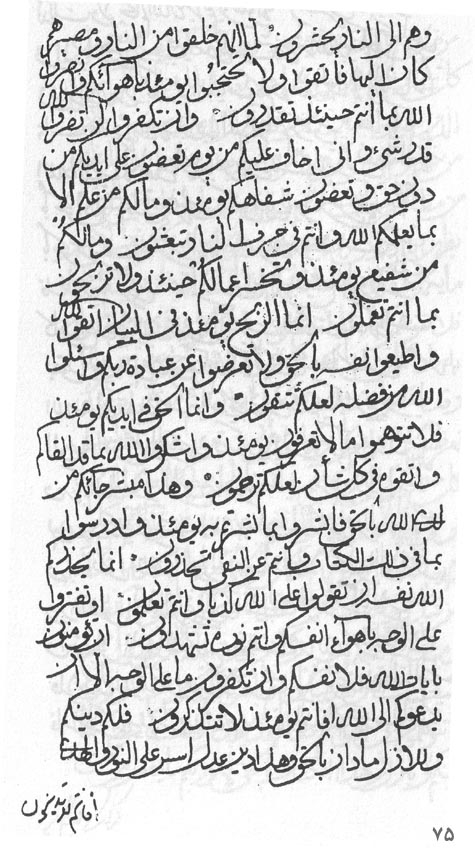 وهم الى النار يحشرون لما انهم خلقوا من النار ومصيرهم
كان اليها فاتقوا ولا تحتجبوا يومئذ باهوائكم وانصروا
الله بما انتم حينئذ تقدرون وان تكفروا لن تضروا الله
قدر شئ وانى اخاف عليكم من يوم تعضون على ايديكم من
دون حق وتعضون شفاهكم يومئذ ومالكم من علم الا
بما يعلمكم الله وانتم فى حرف النار تبعثون ومالكم
من شفيع يومئذ وتخسر اعمالكم حينئذ ولا تربحون
بما انتم تعملون انما الربح يومئذ فى البيان اتقوا الله
واطيعوا نفسه بالحق ولا تعرضوا عن عبادة ربكم واسئلوا
الله من فضله لعلكم تتقون وانما الحق فى ايديكم يومئذ
فلا تتوهموا ما لا تعرفون يومئذ واشكروا الله بما قد القاكم
واتقوه فى كل شأن لعلكم ترحمون وهذا مبشر جائكم من
الله بالحق فابشروا بما بشرتم به يومئذ وادرسوا
بما فى ذلك الكتاب وانتم عن النفى تحذرون انما يحذركم
الله نفسه ان تقولوا على الله كذبا وانتم تعلمون او تفتروا
على الوجه باهواء انفسكم وانتم نوره تشهدون ان تؤمنون
بايات الله فلانفسكم وان تكفرون ما على الوجه الا ان
يدعوكم الى الله افانتم يومئذ لا تتذكرون فلكم دينكم
وللازل ما دان بالحق وهذا دين عدل اسس على النور والهدى
افانتم تريدون
۷۵